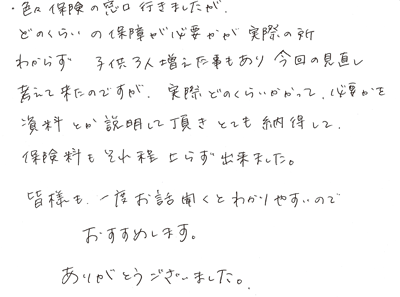 ・色々保険の窓口行きましたが、
どのくらいの保障が必要かが実際の所
わからず 子供3人増えた事もあり今回の見直し
考えて来たのですが、実際どのくらいかかって、必要かを
資料とか説明して頂きとても納得して、
保険料もそれ程上らず出来ました。
皆様も、一度お話聞くとわかりやすいので
おすすめします。
ありがとうございました。